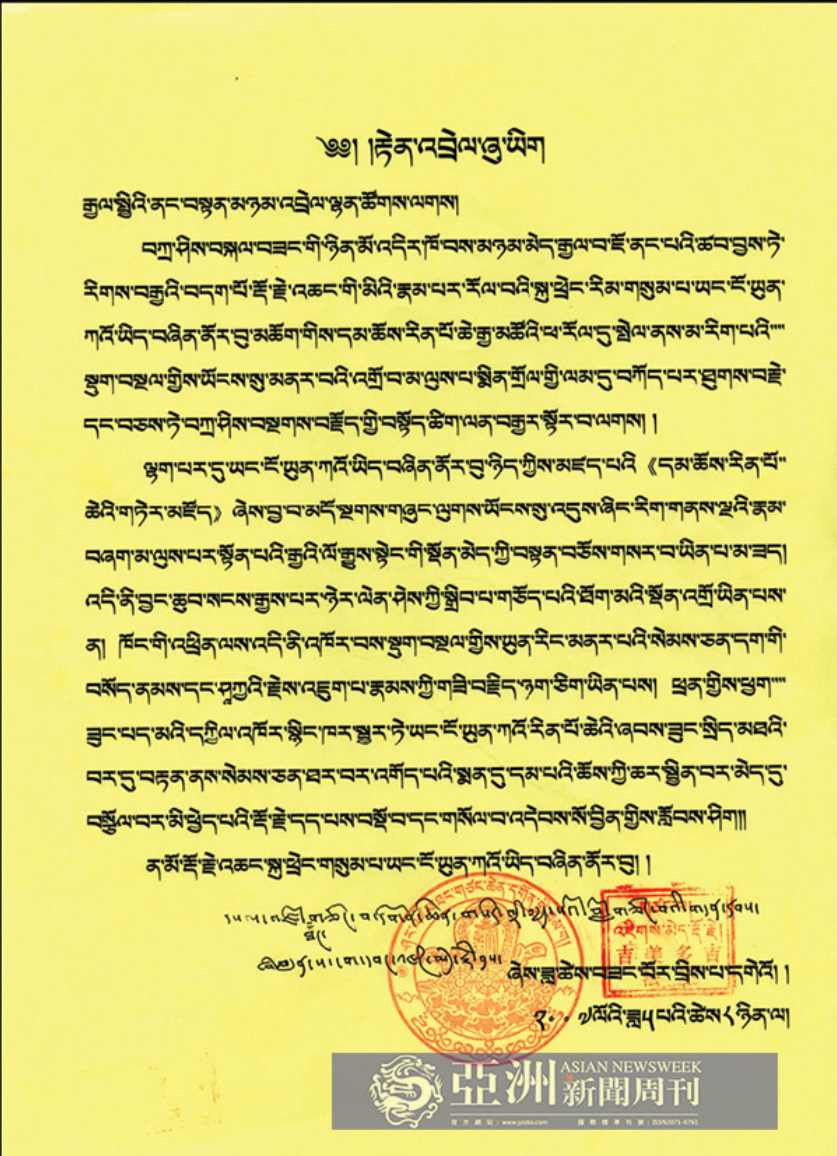 ༄༅། །རྟེན་འབྲེལ་ཞུ་ཡིག
རྒྱལ་སྤྱིའི་ནང་བསྟན་མཉམ་འབྲེལ་ལྷན་ཚོགས་ལགས།
བཀྲ་ཤིས་བསྐལ་བཟང་གི་ཉིན་མོ་འདིར་ཁོ་བས་མཉམ་མེད་རྒྱལ་བ་ཇོ་ནང་པའི་ཚབ་བྱས་ཏེ་
རིགས་བརྒྱའི་བདག་པོ་རྡོ་རྗེ་འཆང་གི་མིའི་རྣམ་པར་རོལ་བའི་སྐུ་ཕྲེང་རིམ་གསུམ་པ་ཡང་ངོ་ཡུན་
ཀའོ་ཡིད་བཞིན་ནོར་བུ་མཆོག་གིས་དམ་ཆོས་རིན་པོ་ཆེ་རྒྱ་མཚོའི་ཕ་རོལ་དུ་སྤེལ་ནས་མ་རིག་པའི་
སྡུག་བསྔལ་གྱིས་ཡོངས་སུ་མནར་བའི་འགྲོ་བ་མ་ལུས་པ་སྨིན་གྲོལ་གྱི་ལམ་དུ་བཀོད་པར་ཐུགས་བརྗེ་
དང་བཅས་ཏེ་བཀྲ་ཤིས་བསྔགས་བརྗོད་ཀྱི་བསྟོད་ཚིག་ལན་བརྒྱར་སྟོར་བ་ལགས། །
ལྷག་པར་དུ་ཡང་ངོ་ཡུན་ཀའོ་ཡིད་བཞིན་ནོར་བུ་ཉིད་ཀྱིས་མཛད་པའི 《དམ་ཆོས་རིན་པོ་
ཆེའི་གཏེར་མཛོད》 ཞེས་བྱ་བ་མདོ་སྔགས་གཞུང་ལུགས་ཡོངས་སུ་འདུས་ཞིང་རིག་གནས་ལྔའི་རྣམ་
བཞག་མ་ལུས་པར་སྟོན་པའི་རྒྱའི་ལོ་རྒྱུས་སྟེང་གི་སྔོན་མེད་ཀྱི་བསྟན་བཅོས་གསར་བ་ཡིན་པ་མ་ཟད།
འདི་ནི་བྱང་ཆུབ་སངས་རྒྱས་པར་ཉེར་ལེན་ཤེས་ཀྱི་སྒྲིབ་པ་གཅོད་པའི་ཐོག་མའི་སྔོན་འགྲོ་ཡིན་པས་
ན། ཁོང་གི་འཕྲིན་ལས་འདི་ནི་འཁོར་བས་སྡུག་བསྔལ་གྱིས་ཡུན་རིང་མནར་པའི་སེམས་ཅན་དག་གི་
བསོད་ནམས་དང་ཤཱཀྱའི་རྗེས་འཇུག་པ་རྣམས་ཀྱི་གཟི་བརྗིད་ཉག་ཅིག་ཡིན་པས། ཕྲན་གྱིས་ཕྱག་
ཟུང་པད་མའི་དཀྱིལ་འཁོར་སྙིང་ཁར་སྦྱར་ཏེ་ཡང་ངོ་ཡུན་ཀའོ་རིན་པོ་ཆེའི་ཞབས་ཟུང་སྲིད་མཐའི་
བར་དུ་བརྟན་ནས་སེམས་ཅན་ཐར་བར་འགོད་པའི་སྨན་དུ་དམ་པའི་ཆོས་ཀྱི་ཆར་སྦྱིན་བར་མེད་དུ་
བསྩོལ་བར་མི་ཕྱེད་པའི་རྡོ་རྗེ་དད་པས་བསྔོ་བ་དང་གསོལ་བ་འདེབས་སོ་བྱིན་གྱིས་རློབས་ཤིག།
ན་མོ་རྡོ་རྗེ་འཆང་སྐུ་ཕྲེང་གསུམ་པ་ཡང་ངོ་ཡུན་ཀའོ་ཡིད་བཞིན་ནོར་བུ། །
འཇིགས་མེད་རྡོ་རྗེ།
吉美多吉
ཞེས་ཟླ་ཚེས་བཟང་པོར་བྲིས་པ་དགེའོ། །
༢༠༠༧ལོའི་ཟླ༥པའི་ཚེས༨ཉིན་ལ།
亞洲 ASIAN NEWSWEEK
新聞周刊
官方網站：www.yzzks.com 國際標準刊號：ISSN2071-6761